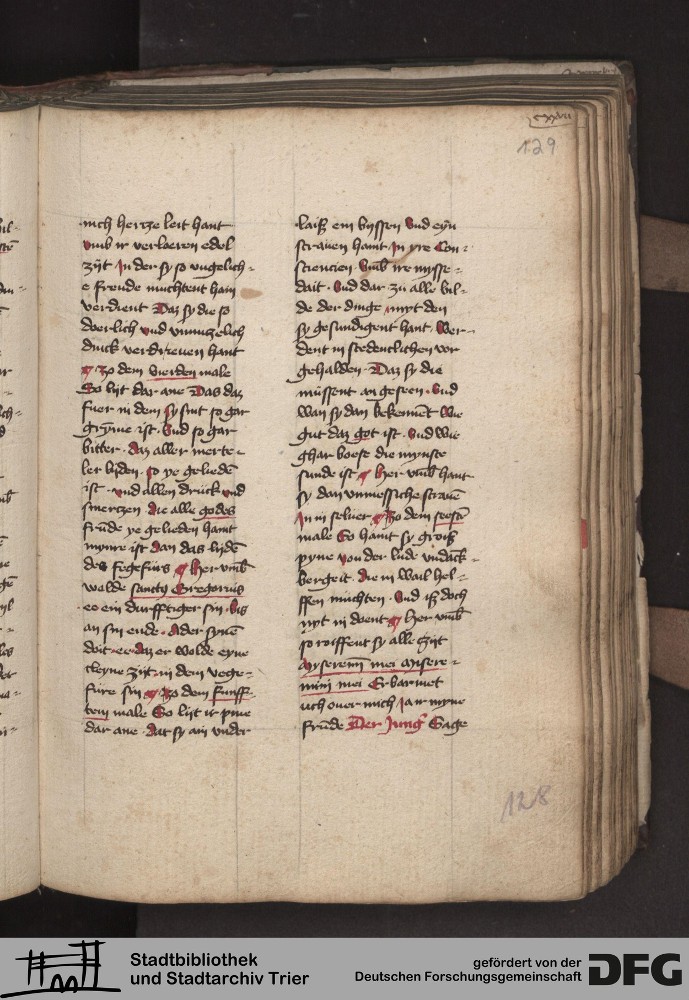 cxxvii
129
mich hertze leit hant
vmb ir verloeren edel
zijt In der sy so vngelich-
e freude muchtent hain
verdient Daz sy die so
doerlich vnd vnnutzelich
druck verdrieuen hant
zo dem vierden male
So lijt dar ane Das daz
fuer in dem sy sint so gar
gryme ist Vnd so gar
bitter daz aller merte-
ler lyden so ye geliedē
ist vnd allen drůck vnd
smertzen die alle godes
frůnde ye gelieden haint
mynre ist dan das lydē
des fegefurs her vmb
wolde sanctus Gregorius
ee ein durfftiger sin bis
an sin ende Ader synē
doit ee daz er wolde eyne
cleyne zijt in dem vege-
fure sin zo dem funff-
tem male So lijt ir pine
dar ane dat sy ain vnder
laiß ein byssen vnd eyn
straiien haint In yre Con-
sciencien vmb ire mysse-
dait Vnd dar zu alle bil-
de der dinge myt den
sy gesundigent hant Wer-
dent in stedentlichen vor
gehalden Daz sy die
müssent an geseen Vnd
wan sy dan bekennēt wie
gut daz got ist Vnd wie
ghar boese die mynste
sunde ist her vmb hant
sy dan vnmessiche straiiē
In in seluer zo dem seesten
male So haint sy groiß
pyne von der lude vndack-
bergeit die in wail hel-
ffen muchten Vnd iß doch
nyt in doent her vmb
so roiffent sy alle zijt
Myseremi mei mysere-
mini mei Erbarmet
uch ouer mich Ja ir myne
frůnde Der Jung Sage
128
Stadtbibliothek
und Stadtarchiv Trier
gefördert von der
Deutschen Forschungsgemeinschaft
DFG